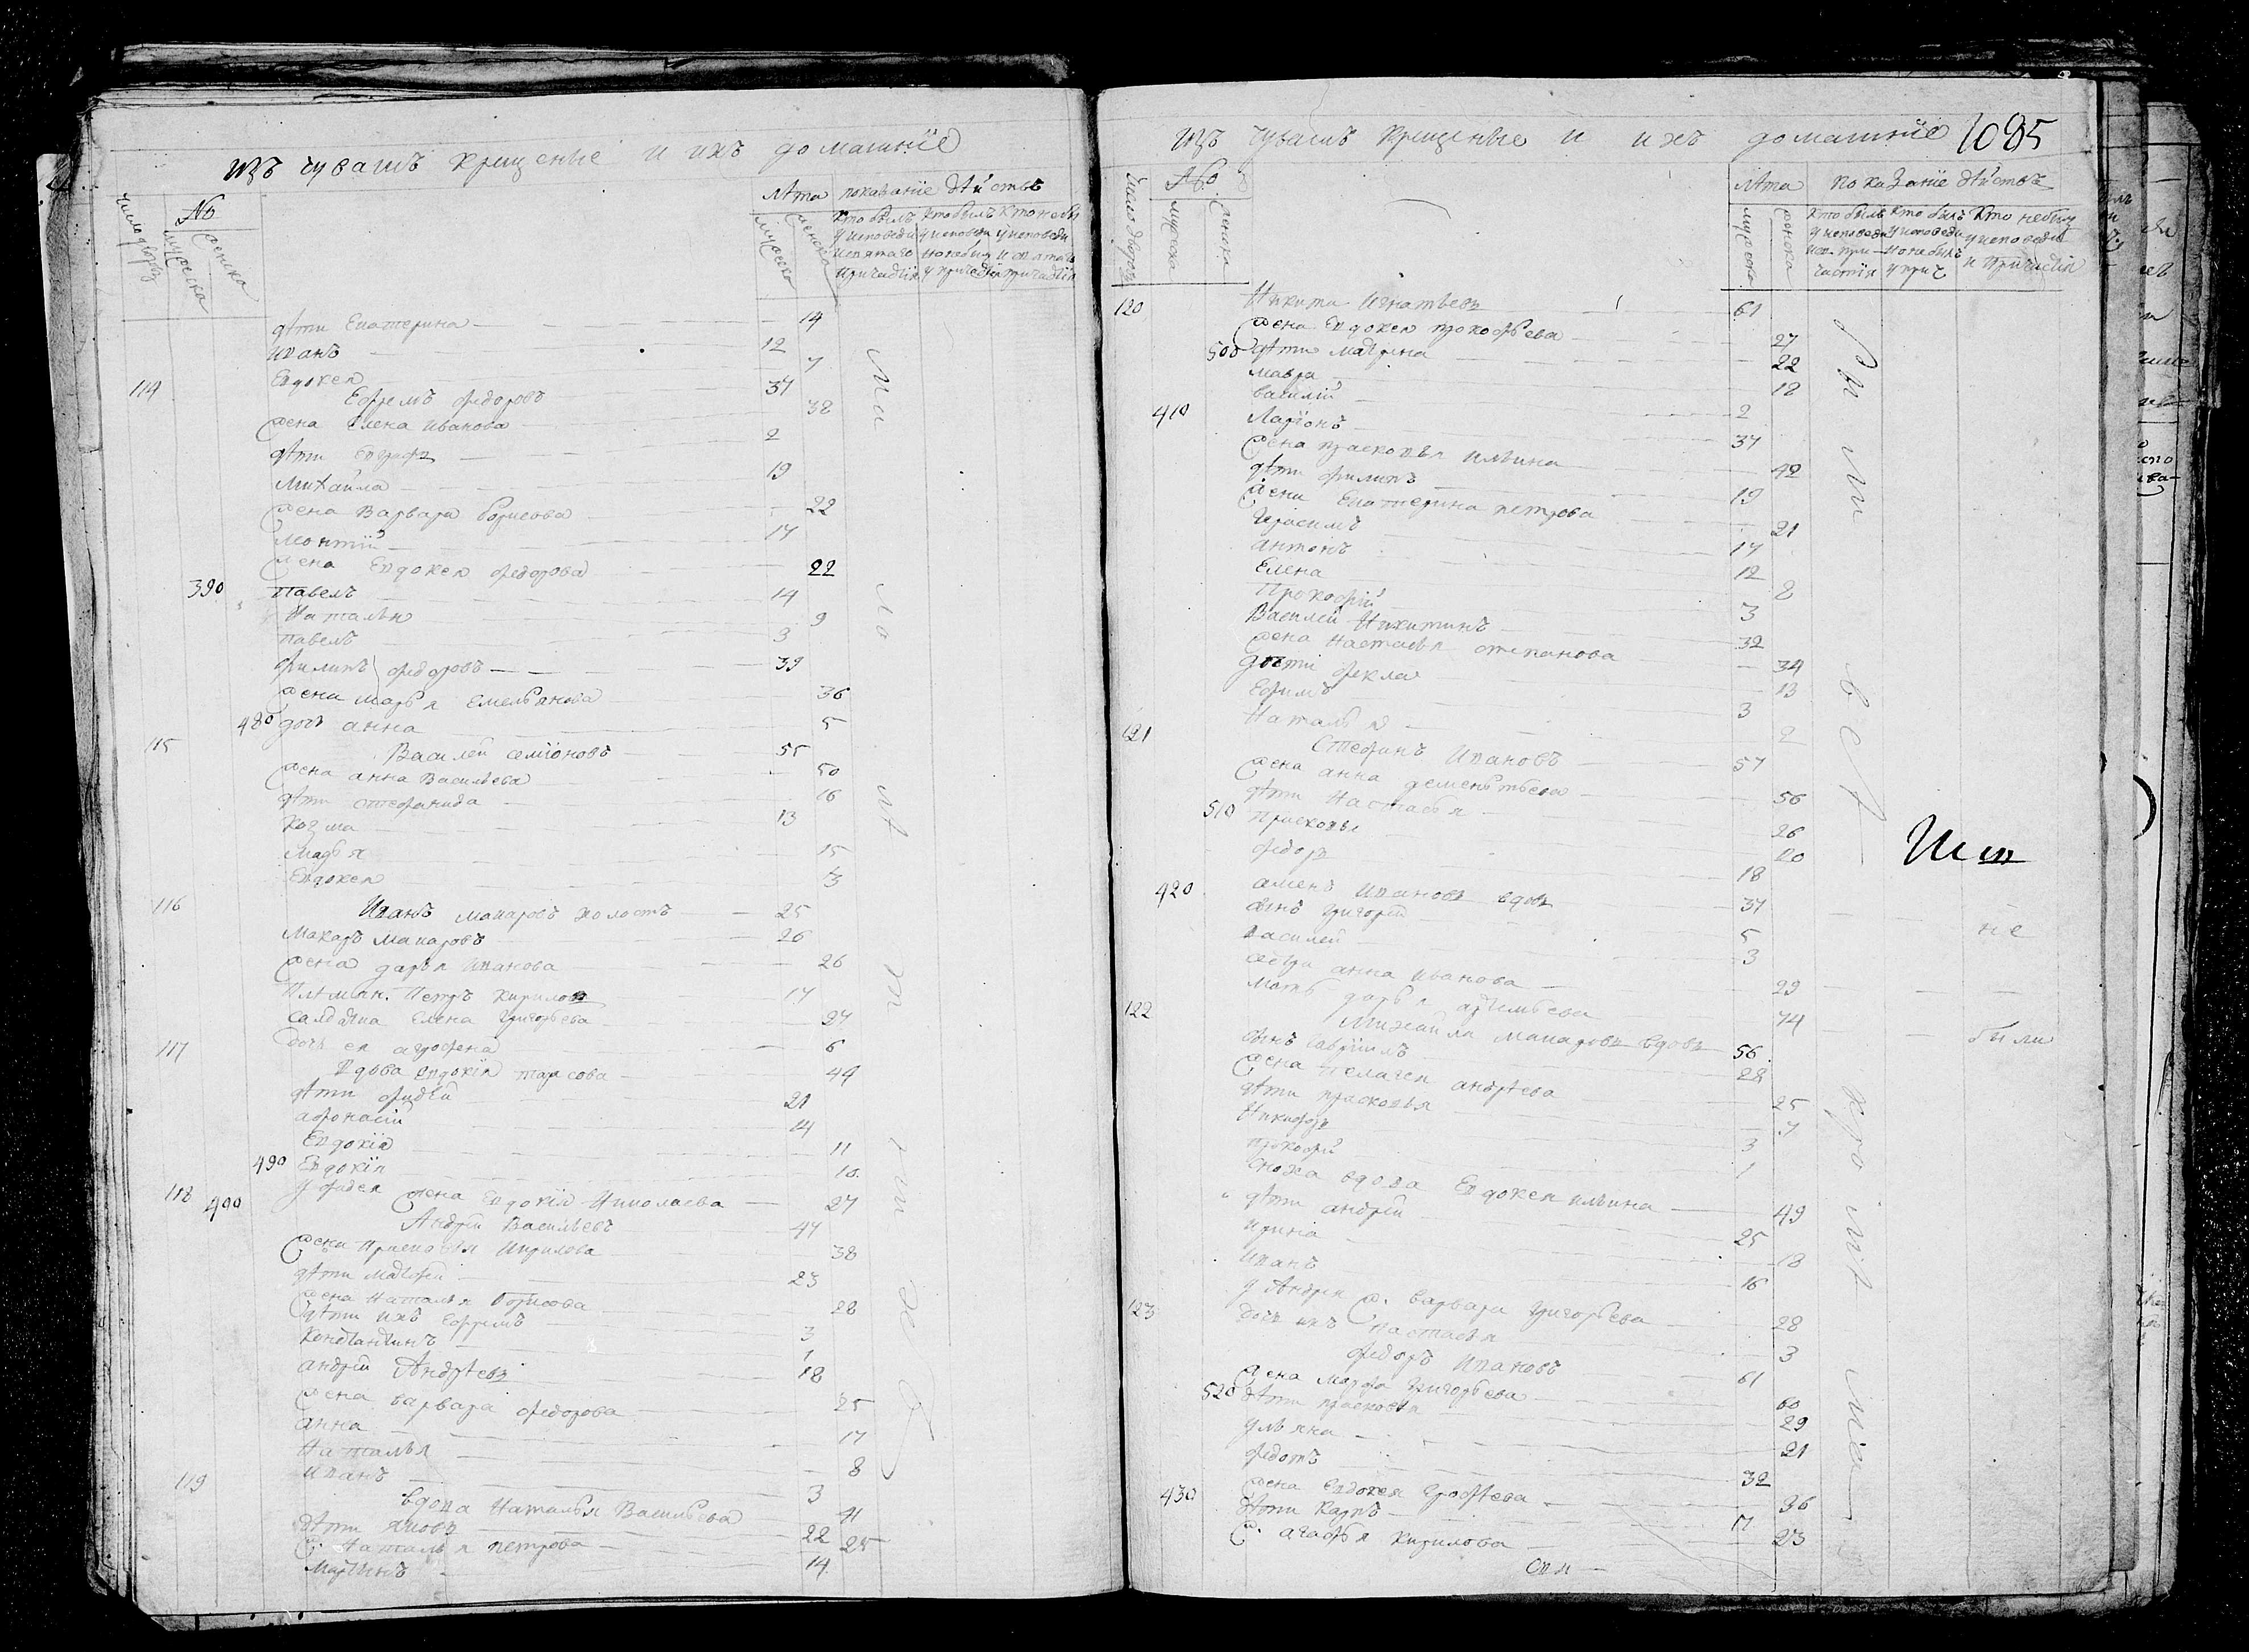 изъ чувашъ крещеные и ихъ домашнїе
число дворъ
№
мужеска
женска
лѣта
мужеска
женска
показанїе дѣйствъ
кто былъ у исповеди и святаго причастїя
кто былъ у исповеди но небылъ у причастїя
кто небылъ у исповеди и святаго причастїя
дѣти Екатерина 14
иванъ 12
Евдокея 7
114 Ефремъ федоровъ 37
жена Елена иванова 38
дѣти Евграфъ 2
михайла 19
жена варвара борисова 22
леонтїй 17
жена Евдокея федорова 22
390 павелъ 14
наталья 9
павелъ 3
филипъ федоровъ 39
жена марья емельянова 36
480 дочь анна 5
115 Василей семїоновъ 55
жена анна васильева 50
дѣти стефанида 16
козма 13
марья 15
Евдокея 13
116 Иванъ макаровъ холостъ 25
макаръ макаровъ 26
жена дарья иванова 26
племян. Петръ кириловъ 17
салдатка елена григорьева 27
дочь ея агрофена 6
117 вдова евдокїя тарасова 44
дѣти фадѣй 21
афонасїй 14
Евдокїя 11
490 Евдокїя 10
у фадея жена евдокїя николаева 27
118 400 Андрей васильевъ 47
жена прасковья кирилова 38
дѣти матфей 23
жена наталья борисова 28
дѣти ихъ ефремъ 3
константинъ 1
андрей Андрѣевъ 18
жена варвара федорова 25
анна 17
наталья 8
иванъ 3
119 вдова наталья васильева 41
дѣти яковъ 22
ж. наталья петрова 25
мартинъ 14
изъ чувашъ крещеные и ихъ домашнїе 1085
число дворовъ
№
мужеска
женска
лѣта
мужеска
женска
показанїе дѣйствъ
кто былъ у исповеди и св. причастїя
кто былъ у исповеди но небылъ у прич
кто небылъ у исповеди и причастїя
120 Никита игнатьевъ 61
жена Евдокея прокофьева 27
500 дѣти матрена 22
мавра 18
василїй 2
410 Ларїонъ 37
жена прасковья ильина 42
дѣти филипъ 19
жена Екатерина петрова 21
Герасимъ 17
антонъ 12
Елена 8
Прокофїй 3
Василей Никитинъ 32
жена настасья степанова 34
дѣти фекла 13
Ефимъ 3
наталья 2
121 Стефанъ ивановъ 57
жена анна дементьева 56
дѣти настасья 26
510 прасковья 20
федоръ 18
420 ивановъ вдовъ 37
сынъ григорей 5
василей 3
сестра анна иванова 29
мать дарья 74
122 михайла макаровъ вдовъ 56
сынъ гаврїилъ 28
жена пелагея андрѣева 25
дѣти прасковья 7
никифоръ 3
прокофей 1
сноха вдова Евдокея ильина 49
дѣти андрей 25
ирина 18
иванъ 16
у Андрея ж. варвара григорьева 28
дочь ихъ настасья 3
123 федоръ ивановъ 61
жена марфа григорьева 60
520 дѣти прасковья 29
ульяна 21
федотъ 32
жена евдокея 36
430 дѣти карпъ 17
ж. агафья кирилова 23
не
были